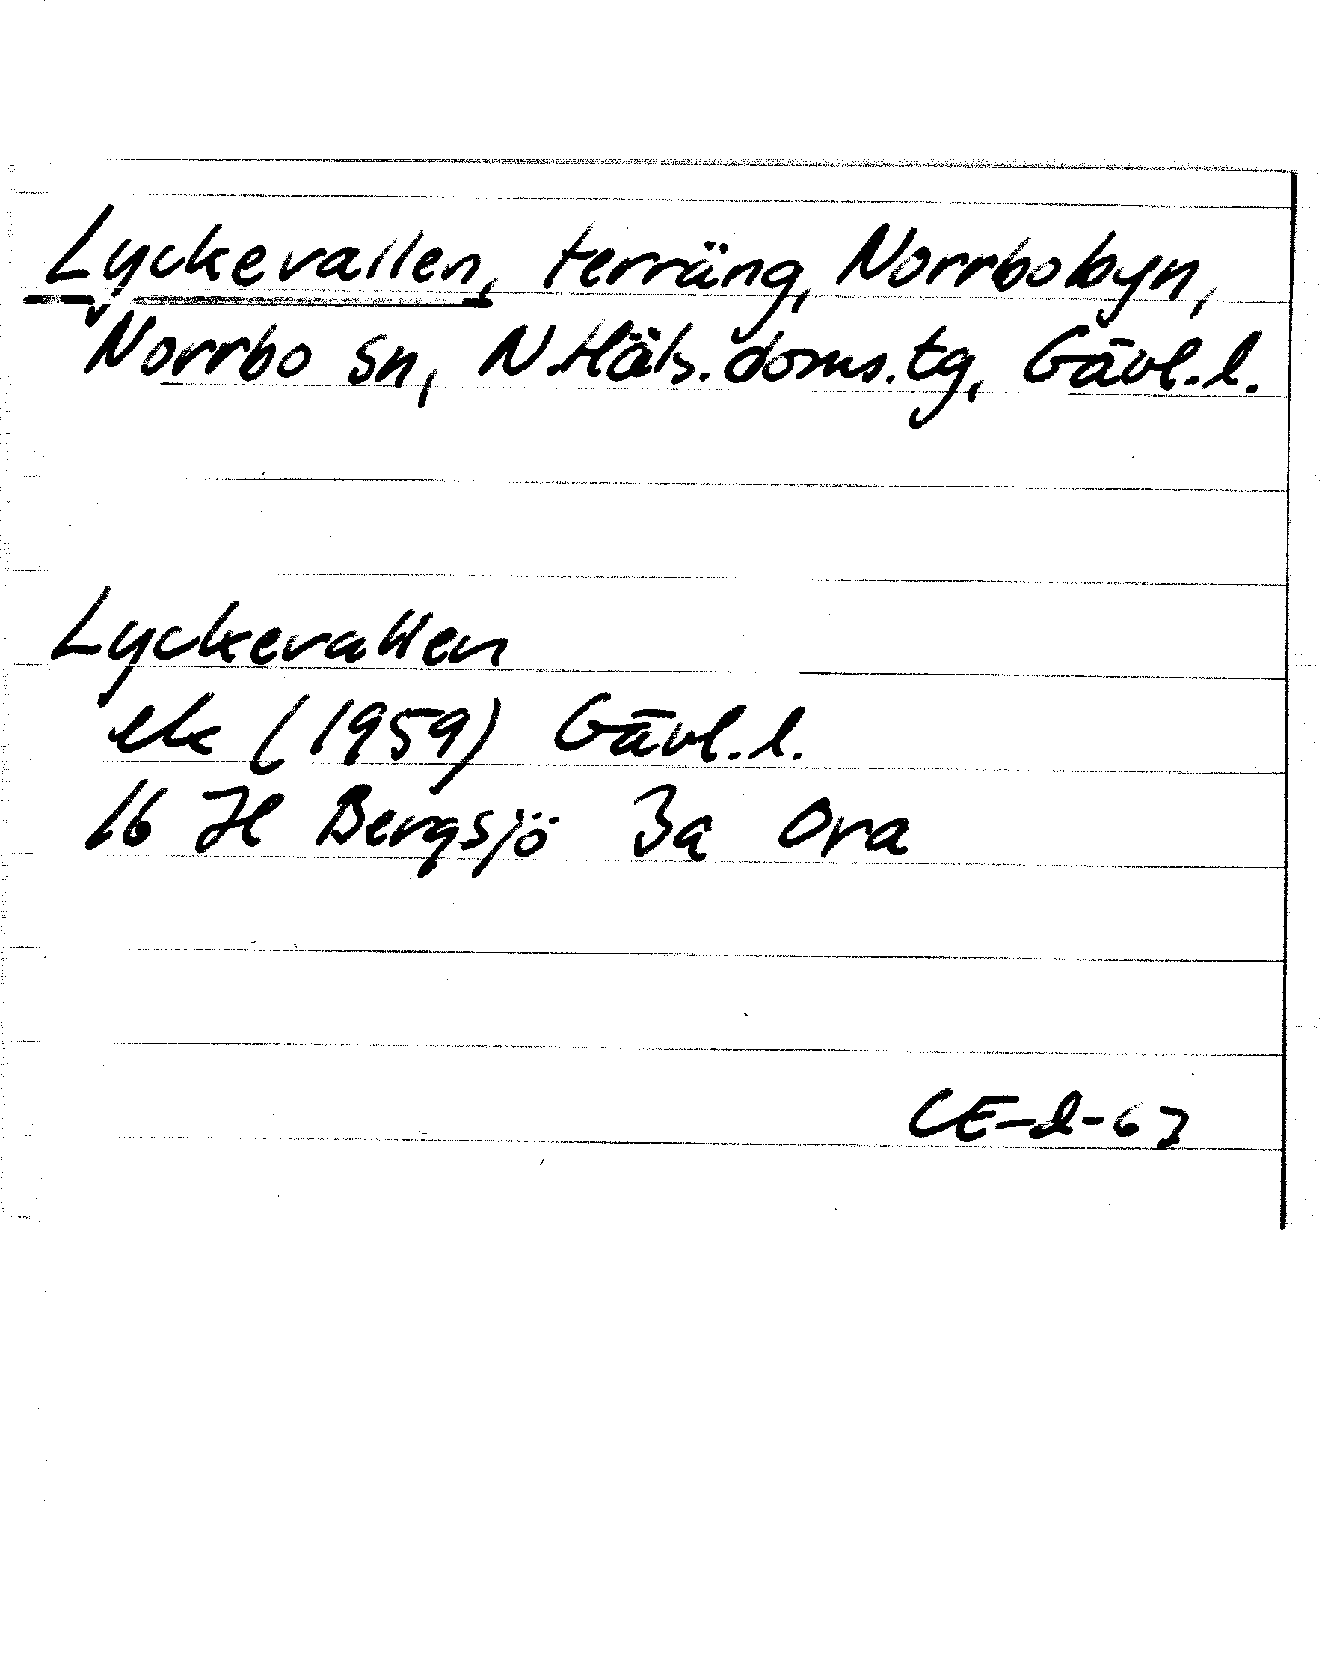 Lyckevallen, terräng, Norrbobyn,
Norrbo sn, N.Häls.doms.tg, Gävl.l.
Lyckevallen
ek (1959) Gävl.l.
16 H Bergsjö 3a Ora
CE-d-67